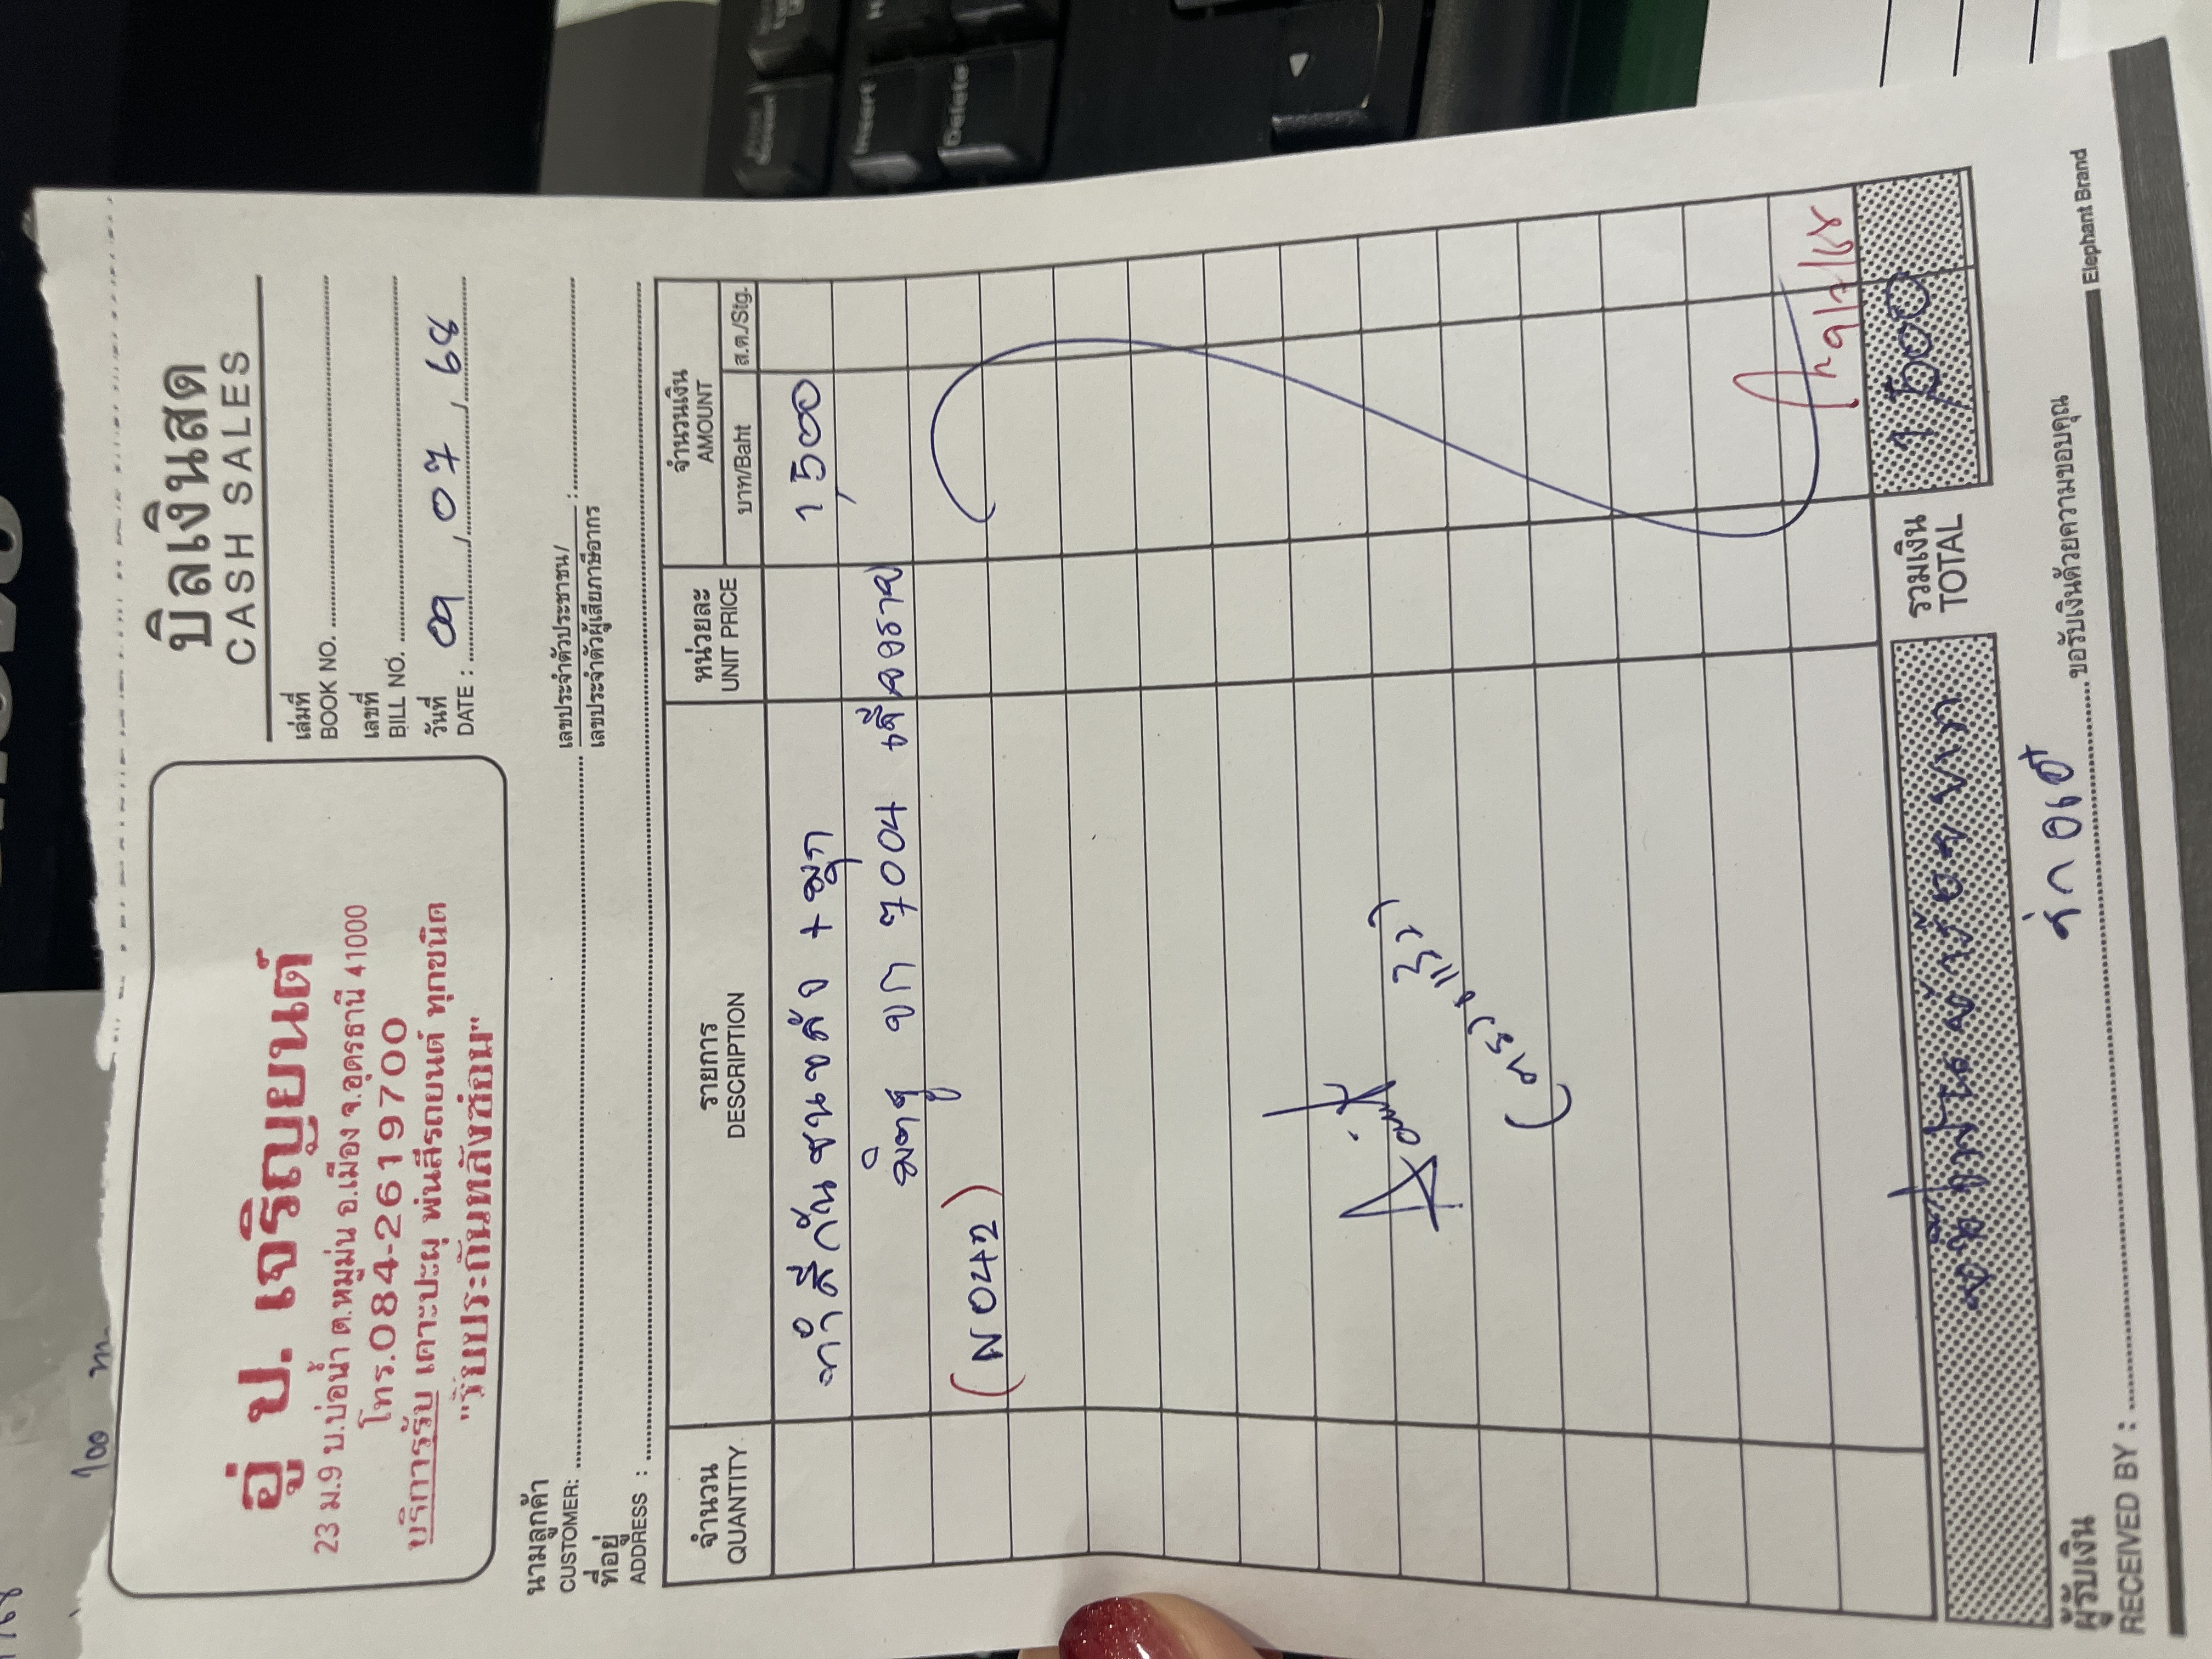 อู่ ป. เจริญยนต์
23 ม.9 บ.บ่อน้ำ ต.หมูม่น อ.เมือง จ.อุดรธานี 41000
โทร.084-2619700
บริการรับ เคาะปะผุ พ่นสีรถยนต์ ทุกชนิด
"รับประกันหลังซ่อม"
บิลเงินสด
CASH SALES
เล่มที่
BOOK NO.
เลขที่
BILL NO.
วันที่
DATE : 09 / 07 / 68
นามลูกค้า
CUSTOMER:
เลขประจำตัวประชาชน/
เลขประจำตัวผู้เสียภาษีอากร :
ที่อยู่
ADDRESS :
จำนวน รายการ หน่วยละ จำนวนเงิน
QUANTITY DESCRIPTION UNIT PRICE AMOUNT
บาท/Baht ส.ต./Stg.
ทำสีกันชนหลัง + มุก 1,500
มิตซู ขก 7004
(N042)
รวมเงิน
TOTAL 1,500
หนึ่งพันห้าร้อยบาท
ผู้รับเงิน
RECEIVED BY : ขอรับเงินด้วยความขอบคุณ
Elephant Brand
Insert
Delete